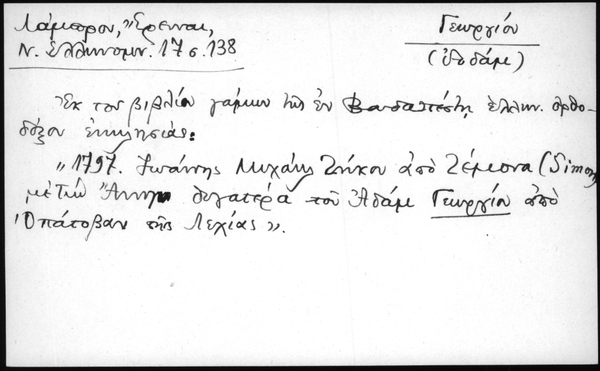 Λάμπρου, "Έρευναι,
Ν. Ἑλληνομν. 17 σ. 138
Γεωργίου
(Ἀδάμ)
Ἐκ τοῦ βιβλίου γάμων τῆς ἐν Βουδαπέστῃ ἑλλην. ὀρθο-
δόξου ἐκκλησίας:
"1797. Ἰωάννης Μιχαὴλ Ζήκου ἀπὸ Ζέμονα (Simon)
μὲ τὴν Ἄννα θυγατέρα τοῦ Ἀδὰμ Γεωργίου ἀπὸ
Ὀπάτοβαν τῆς Λεχίας".